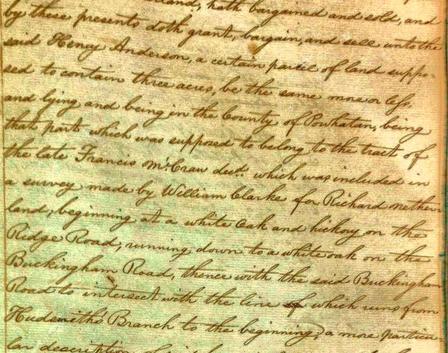 land, hath bargained and sold, and
by these presents doth grant, bargain, and sell unto the
said Henry Anderson, a certain parcel of land suppo-
sed to contain three acres, be the same more or less,
and lying and being in the County of Powhatan, being
that part which was supposed to belong to the tract of
the late Francis McCraw decd. which was included in
a survey made by William Clarke for Richard Nether
land, beginning at a white oak and hickory on the
Ridge Road, running down to a white oak on the
Buckingham Road, thence with the said Buckingham
Road to intersect with the line of which runs from
Hudsmith's Branch to the beginning, a more particu
lar description of